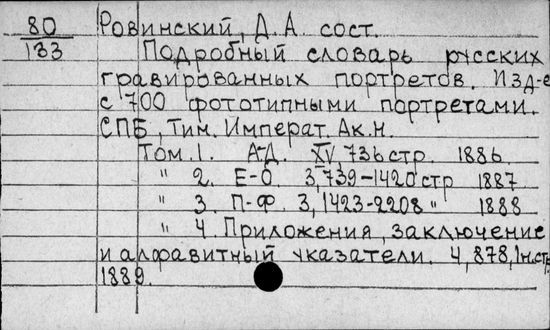 80 Ровинский, Д.А. сост.
133 Подробный словарь русских
гравированных портретов. Изд-е
с 700 фототипными портретами.
СПБ, Тип. Императ. Ак. Н.
Том. 1. А-Д. XV, 736 стр. 1886.
" 2. Е-О. 3, 739-1420 стр 1887
" 3. П-Ф. 3, 1423-2208 " 1888
" 4. Приложения, заключение
и алфавитный указатели. 4, 878, 1н.стр.
1889.